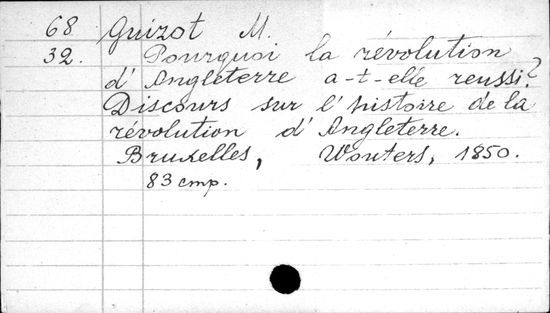 68 Guizot M.
32. Pourquoi la révolution
d'Angleterre a-t-elle reussi?
Discours sur l'histoire de la
révolution d'Angleterre.
Bruxelles, Wouters, 1850.
83 cmp.